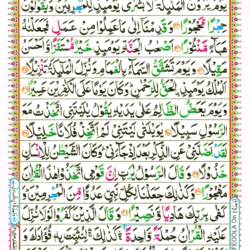 يَوْمَ يَرَوْنَ الْمَلٰٓئِكَةَ لَا بُشْرٰى يَوْمَئِذٍ لِّلْمُجْرِمِيْنَ وَيَقُوْلُوْنَ
حِجْرًا مَّحْجُوْرًا ۝ وَقَدِمْنَآ اِلٰى مَا عَمِلُوْا مِنْ عَمَلٍ فَجَعَلْنٰهُ
هَبَآءً مَّنْثُوْرًا ۝ اَصْحٰبُ الْجَنَّةِ يَوْمَئِذٍ خَيْرٌ مُّسْتَقَرًّا وَّاَحْسَنُ
مَقِيْلًا ۝ وَيَوْمَ تَشَقَّقُ السَّمَآءُ بِالْغَمَامِ وَنُزِّلَ الْمَلٰٓئِكَةُ تَنْزِيْلًا ۝
اَلْمُلْكُ يَوْمَئِذِ ِۨالْحَقُّ لِلرَّحْمٰنِ وَكَانَ يَوْمًا عَلَى الْكٰفِرِيْنَ عَسِيْرًا ۝
وَيَوْمَ يَعَضُّ الظَّالِمُ عَلٰى يَدَيْهِ يَقُوْلُ يٰلَيْتَنِى اتَّخَذْتُ مَعَ
الرَّسُوْلِ سَبِيْلًا ۝ يٰوَيْلَتٰى لَيْتَنِىْ لَمْ اَتَّخِذْ فُلَانًا خَلِيْلًا ۝
لَقَدْ اَضَلَّنِىْ عَنِ الذِّكْرِ بَعْدَ اِذْ جَآءَنِىْ وَكَانَ الشَّيْطٰنُ لِلْاِنْسَانِ
خَذُوْلًا ۝ وَقَالَ الرَّسُوْلُ يٰرَبِّ اِنَّ قَوْمِى اتَّخَذُوْا هٰذَا الْقُرْاٰنَ
مَهْجُوْرًا ۝ وَكَذٰلِكَ جَعَلْنَا لِكُلِّ نَبِىٍّ عَدُوًّا مِّنَ الْمُجْرِمِيْنَ
وَكَفٰى بِرَبِّكَ هَادِيًا وَّنَصِيْرًا ۝ وَقَالَ الَّذِيْنَ كَفَرُوْا لَوْلَا نُزِّلَ
عَلَيْهِ الْقُرْاٰنُ جُمْلَةً وَّاحِدَةً كَذٰلِكَ لِنُثَبِّتَ بِهٖ فُؤَادَكَ